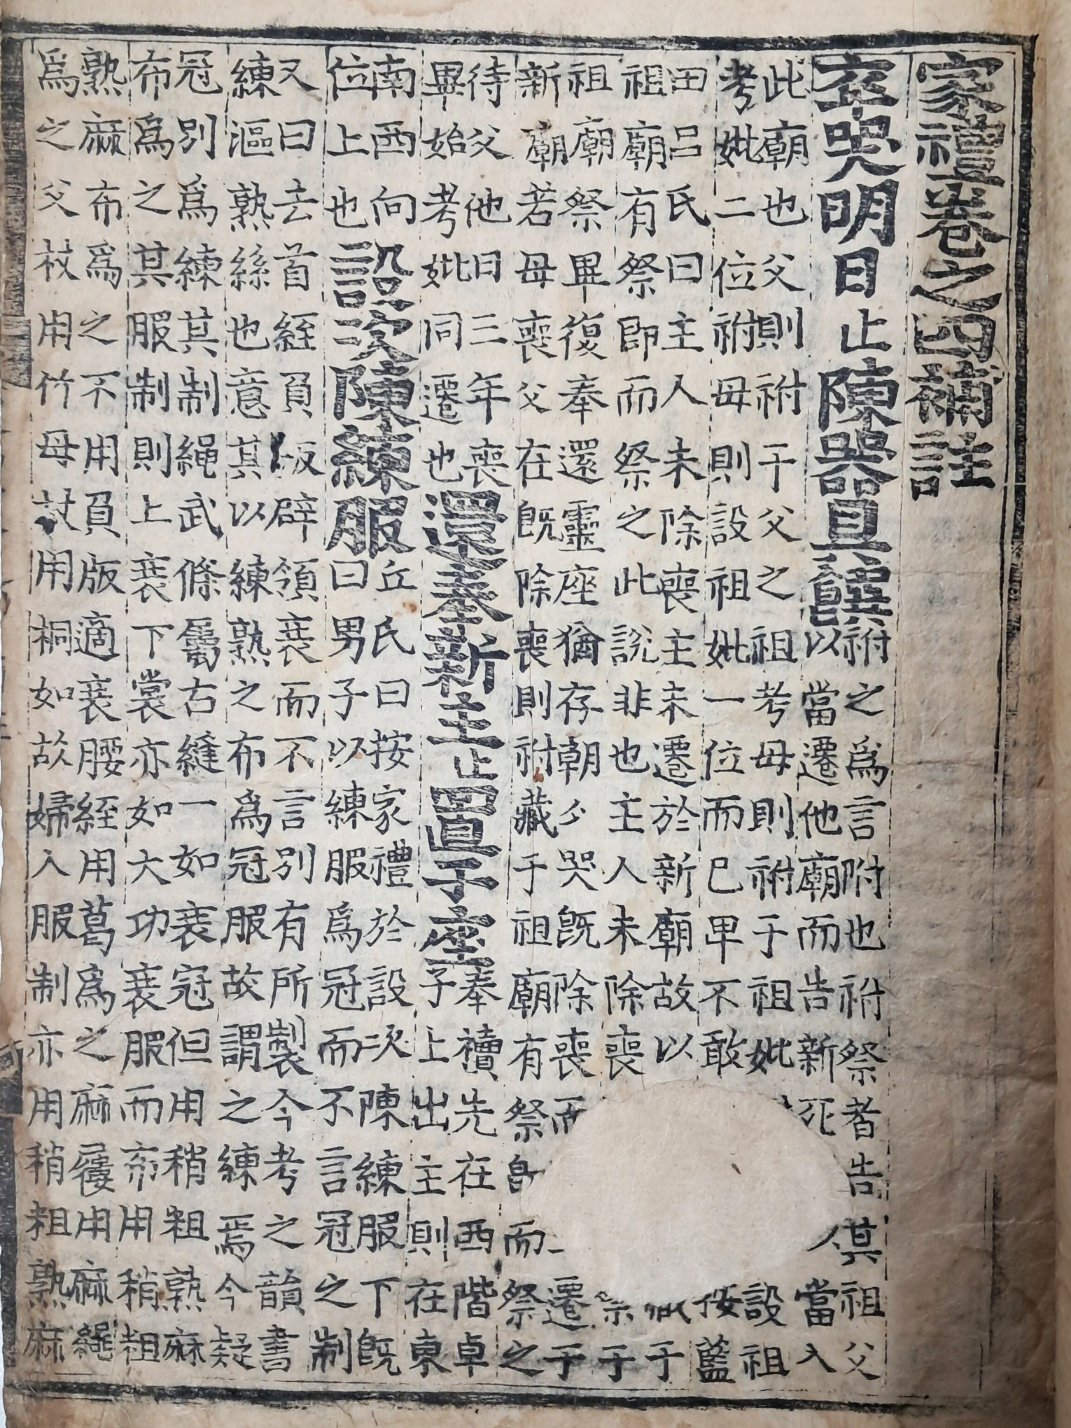 家禮卷之四補註
卒哭明日止陳器具饌
祔之爲言附也祔祭者告其祖父
以當遷他廟而告新死當入
此廟也父則祔于父之祖考母則祔于祖妣設祖
考妣二位祔母則設祖妣一位而已卑不敢按藍
田呂氏曰主人未除喪主未遷於新廟故以藏于
祖廟有祭即而祭之此說非也主人未除喪祭于
祖廟祭畢復奉還靈座猶存朝夕哭旣除喪而遷于
新廟若母喪父在旣除喪則祔藏于祖廟有祭即而祭之
待父他日三年喪
畢始考妣同遷也
還奉新主止置于座
奉櫝先在西階卓
子上出主則在東
南西向
位上也
設次陳練服
丘氏曰按家禮於設次陳練服下旣
曰男子以練服爲冠而不言冠之制
又曰去首絰負版辟領衰而不言別有所製今考之韻書
練漚熟絲也意其以練熟之布爲冠服故謂之練焉今疑
冠別爲練其制繩武條屬古縫一如衰冠但用稍粗熟麻
布爲之其服制則上衰下裳亦如大功衰服而布用稍粗
熟麻布爲之不用負版適衰腰絰用葛爲之麻屨用麻繩
爲之父杖用竹母杖用桐如故婦入服制亦用稍粗熟麻